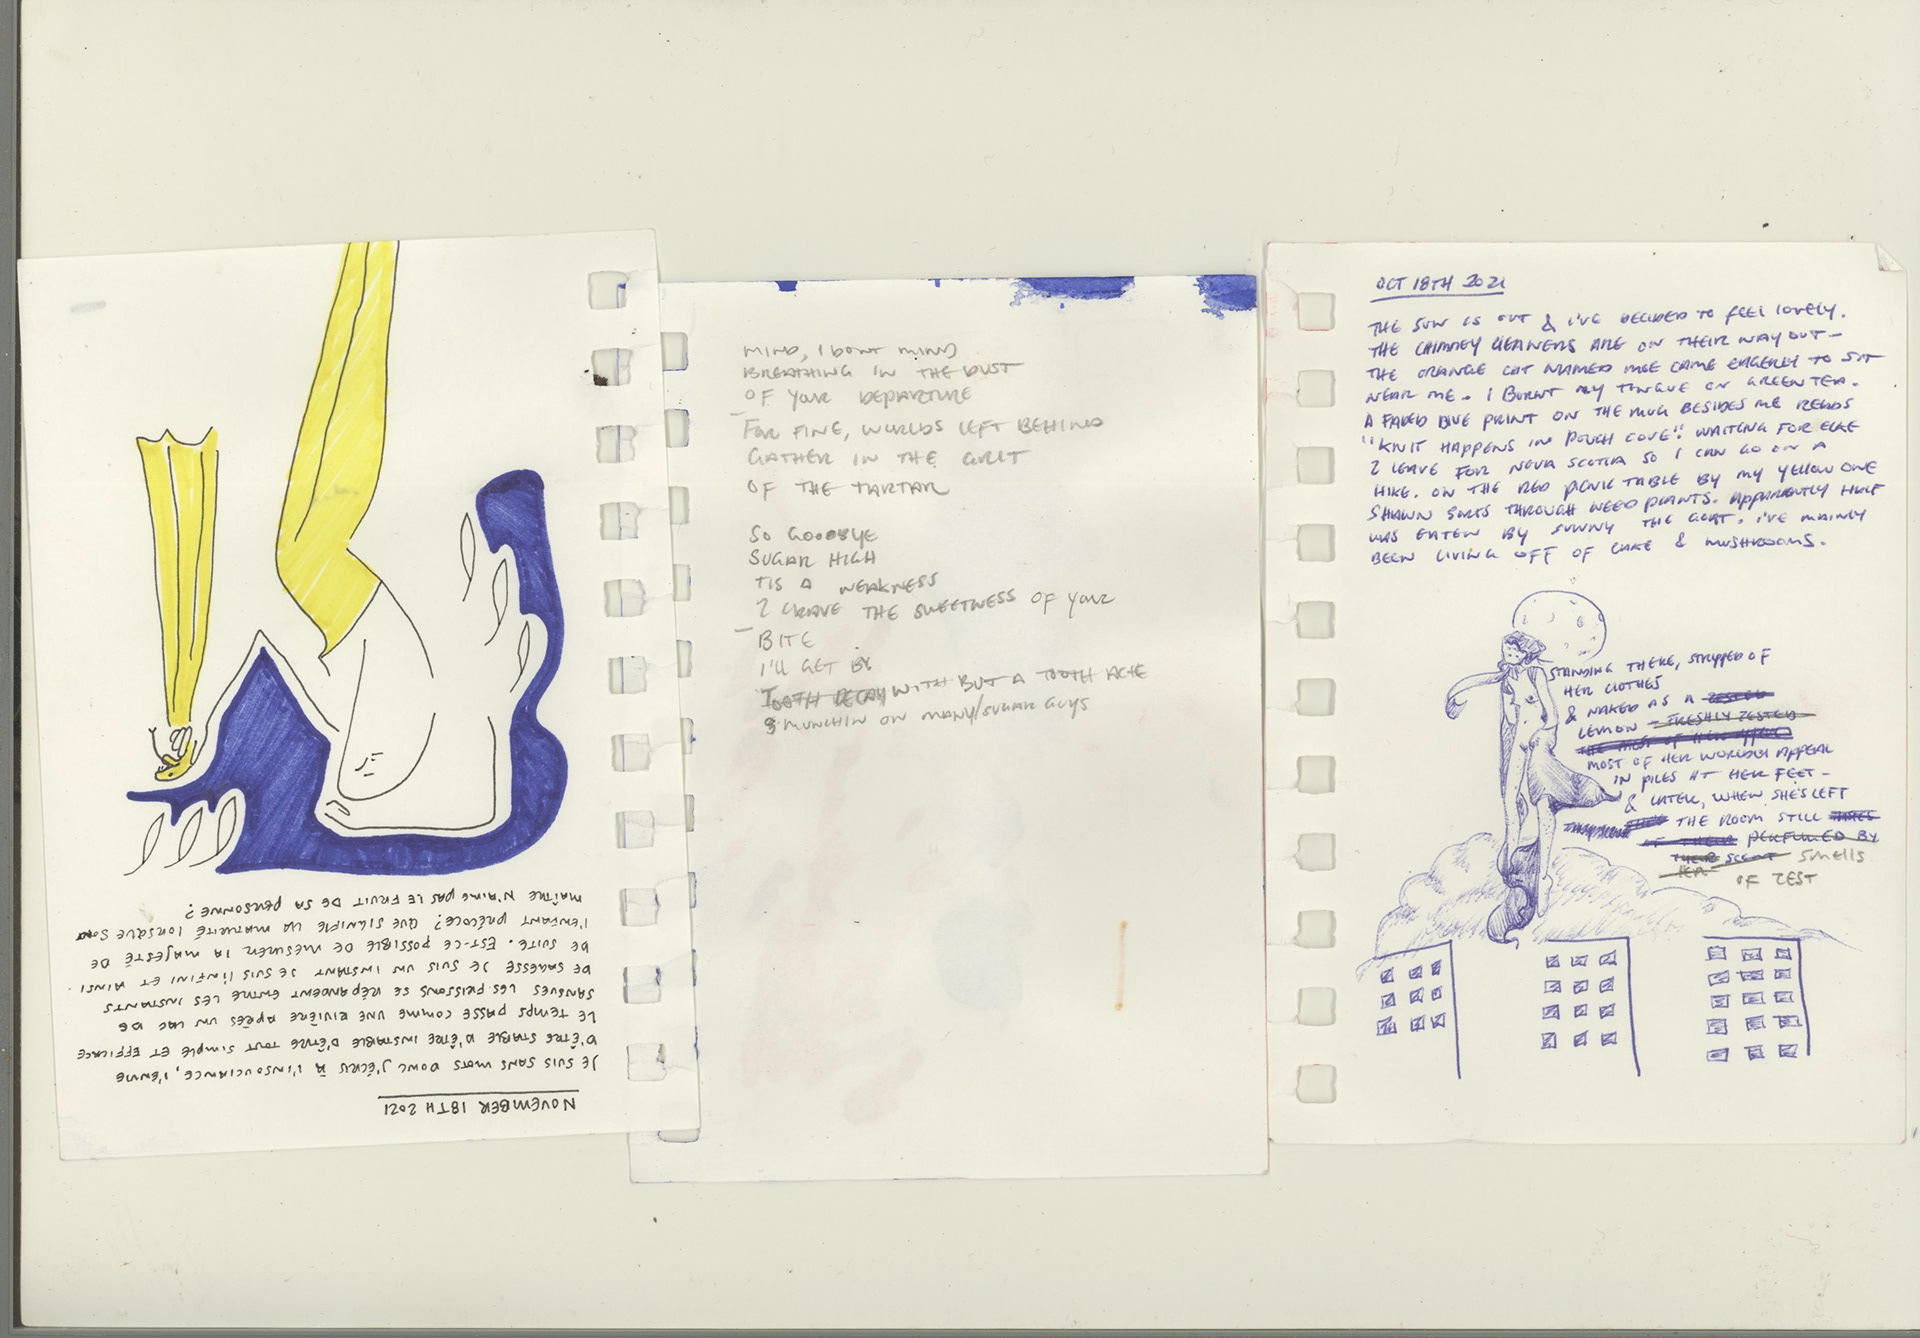 NOVEMBER 18TH 2021
JE SUIS SANS MOTS DONC J'ÉCRIS À L'INSOUCIANCE, L'ENVIE
D'ÊTRE STABLE D'ÊTRE INSTABLE D'ÊTRE TOUT SIMPLE ET EFFICACE
LE TEMPS PASSE COMME UNE RIVIÈRE APRÈS UN LAC DE
SANGUES LES FRISSONS SE RÉPANDENT ENTRE LES INSTANTS
DE SAGESSE JE SUIS UN INSTANT JE SUIS L'INFINI ET AINSI
DE SUITE. EST-CE POSSIBLE DE MESURER LA MAJESTÉ DE
L'ENFANT PRÉCOCE? QUE SIGNIFIE LA MATURITÉ LORSQUE SON
MAÎTRE N'AIME PAS LE FRUIT DE SA PERSONNE?
MIND, I DONT MIND
BREATHING IN THE DUST
OF YOUR DEPARTURE
FOR FINE, WORLDS LEFT BEHIND
GATHER IN THE GRIT
OF THE TARTAR
SO GOODBYE
SUGAR HIGH
TIS A WEAKNESS
I CRAVE THE SWEETNESS OF YOUR
BITE
I'LL GET BY
TOOTH DECAY WITH BUT A TOOTH ACHE
& MUNCHIN ON MANY/SUGAR GUYS
OCT 18TH 2021
THE SUN IS OUT & I'VE DECIDED TO FEEL LOVELY.
THE CHIMNEY CLEANERS ARE ON THEIR WAY OUT -
THE ORANGE CAT NAMED MOE CAME EAGERLY TO SIT
NEAR ME. I BURNT MY TONGUE ON GREEN TEA.
A FADED BLUE PRINT ON THE MUG BESIDES ME READS
"KNIT HAPPENS IN POUCH COVE". WAITING FOR
I LEAVE FOR NOVA SCOTIA SO I CAN GO ON A
HIKE. ON THE RED PICNIC TABLE BY MY YELLOW ONE
SHAWN SORTS THROUGH WEED PLANTS. APPARENTLY HALF
WAS EATEN BY SUNNY THE GOAT. I'VE MAINLY
BEEN LIVING OFF OF CAKE & MUSHROOMS.
STANDING THERE, STRIPPED OF
HER CLOTHES
& NAKED AS A ZESTED
LEMON - FRESHLY ZESTED
THE MOST OF HER APPEAL
MOST OF HER WORLDLY APPEAL
IN PILES AT HER FEET -
& LATER, WHEN SHE'S LEFT
THE ROOM STILL
PERFUMED BY
THEIR SCENT SMELLS
HER OF ZEST